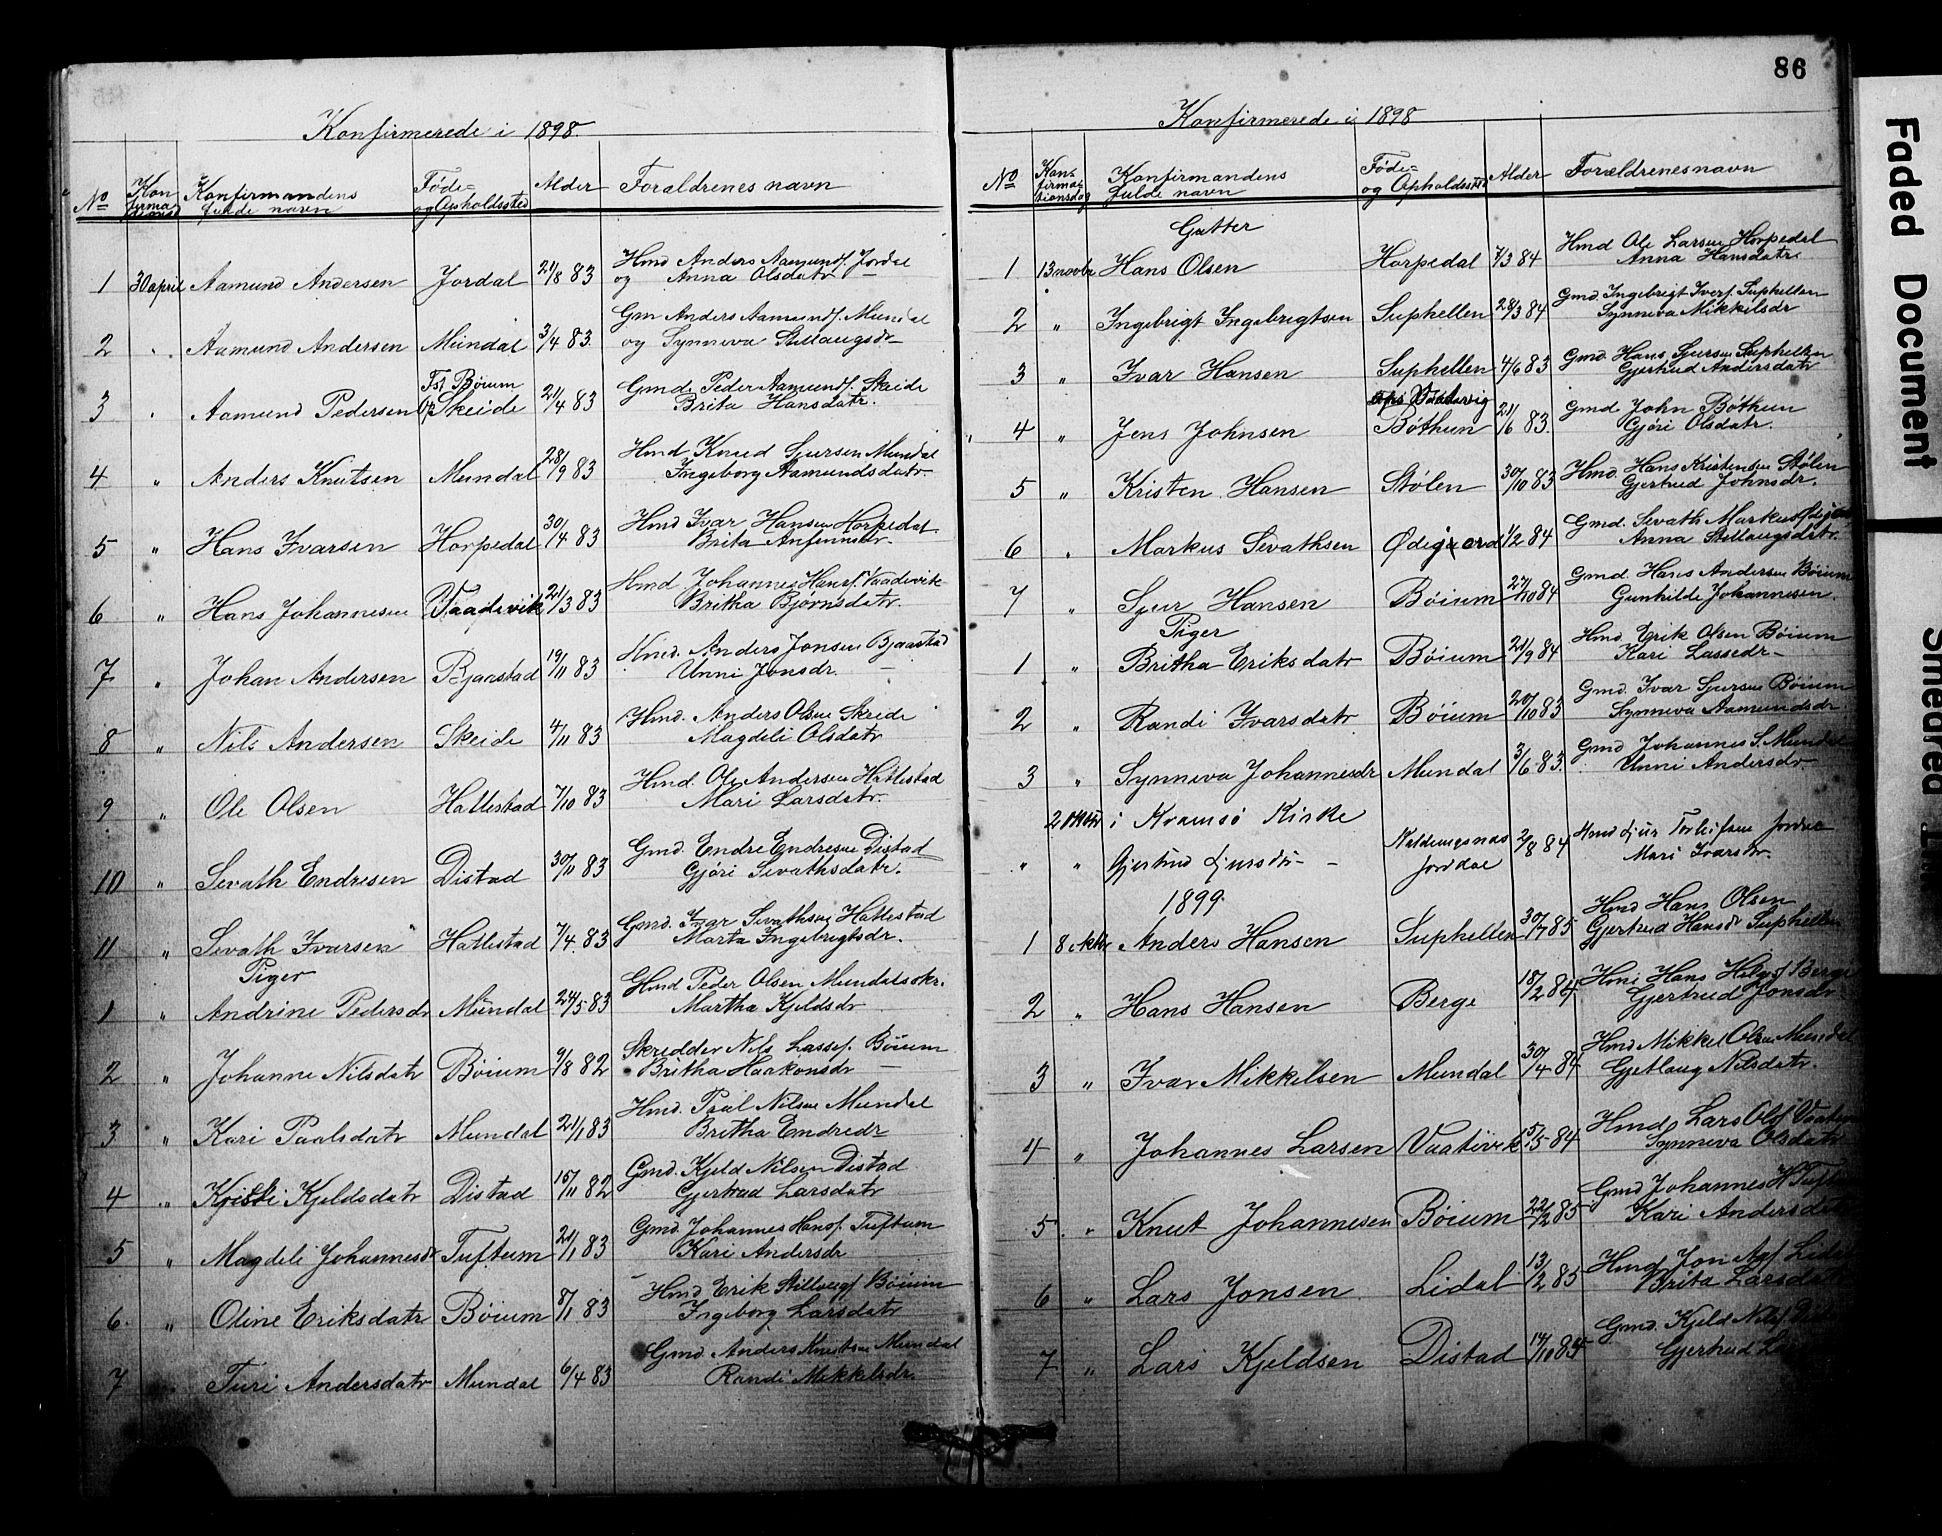 Konfirmerede i 1898.
No Konfirmationsd Konfirmandens fulde navn Føde- og Opholdssted Alder Forældrenes navn
1 30 april Aamund Andersen Jordal 21/8 83 Hmd Anders Aamundsf. Jordal
og Anna Olsdatr
2 " Aamund Andersen Mundal 3/4 83. Gm Anders Aamundsf. Mundal
og Synneva Stellaugsdr
3 " Aamund Pedersen Fst Bøium Skeide 21/4 83 Gmd. Peder Aamundsf. Skeide
Brita Hansdatr.
4 " Anders Knutsen Mundal 28/9 83 Hmd Knud Sjursen Mundal
Ingeborg Aamundsdatr
5 " Hans Ivarsen Horpedal 30/4 83 Hmd Ivar Hansen Horpedal
Brita Anfinnsdr.
6 " Hans Johannesen Vaadevik 21/3 83 Hmd. Johannes Hansf. Vaadevik
Britha Bjørnsdatr.
7 " Johan Andersen Bjaastad 19/11 83 Anders Jonsen Bjaastad
Unni Jonsdr.
8 " Nils Andersen Skeide 4/11 83 Hmd. Anders Olsen Skeide
Magdeli Olsdatr
9 " Ole Olsen Hatlestad 7/10 83 Hmd. Ole Andersen Hatlestad
Mari Larsdatr.
10 " Sevath Endresen Distad 30/11 83 Gmd. Endre Endresen Distad
Gjøri Sevathsdatr.
11 " Sevath Ivarsen Hatlestad 7/4 83 Gmd. Ivar Sevathsen Hatlestad
Marta Ingebrigtsdr.
Piger
1 " Andrine Pedersdr Mundal 24/5 83 Hmd Peder Olsen Mundalsskr.
Martha Kjeldsdr
2 " Johanne Nilsdatr Bøium 9/8 82 Skredder Nils Lassef. Bøium
Britha Haakonsdr
3 " Kari Paalsdatr Mundal 21/1 83 Hmd. Paal Nilsen Mundal
Britha Endredr
4 " Kristi Kjeldsdatr Distad 15/11 82 Gmd. Kjeld Nilsen Distad
Gjertrud Larsdatr
5 " Magdeli Johannesdr Tuftum 21/1 83 Gmd. Johannes Hansf. Tuftum
Kari Andersdr
6. " Oline Eriksdatr Bøium 8/1 83 Hmd Erik Stellaugsf Bøium
Ingeborg Larsdatr
7 Turi Andersdatr Mundal 6/4 83 Gmd Anders Knutsen Mundal
Randi Mikkelsdr.
86
Konfirmerede i 1898
No Konfirmationsdag Konfirmandens fulde navn Føde- og Opholdssted Alder Forældrenesnavn
Gutter
1 13 novbr Hans Olsen Horpedal 7/3 84 Hmd Ole Larsen Horpedal
Anna Hansdatr
2 " Ingebrigt Ingebrigtsen Suphellen 28/3 84 Gmd. Ingebrigt Iversf. Suphellen
Synneva Mikkelsdr
3 " Ivar Hansen Suphellen 4/6 83 Gmd. Hans Sjursen Suphellen
Gjertrud Andersdatr
4 " Jens Johnsen Bøthun 21/6 83. Gmd John Bøthun
Gjøri Olsdatr.
5 " Kristen Hansen Stølen 30/10 83 Hmd. Hans Kristensen Stølen
Gjertrud Johnsdr.
6 " Markus Sevathsen Ødegaard 1/2 84 Gmd. Sevath Markus
Anna Stellaugsdatr.
7 " Sjur Hansen Bøium 27/10 84 Gmd. Hans Andersen Bøium
Gunhilde Johannesen.
Piger
1 " Britha Eriksdatr Bøium 21/9 84 Hmd. Erik Olsen Bøium
Kari Lassedr
2 " Randi Ivarsdatr Bøium 20/10 83 Gmd. Ivar Sjursen Bøium
Synneva Aamundsdr
3 " Synneva Johannesdr Mundal 3/6 83. Gmd Johannes S. Mundal
Unni Andersdr
2 oktbr i Kvamsø Kirke
" " Gjertrud Sjursdr Jordal 2/8 84 Hmd Sjur Torleifsen Jordal
Mari Ivarsdr.
1899.
1 8 oktbr Anders Hansen Suphellen 30/7 85 Hmd Hans Olsen
Gjertrud Hansdr Suphellen
2 " Hans Hansen Berge 18/2 84 Hmd Hans Helgesf Berge
Gjertrud Jonsdr
3 " Ivar Mikkelsen Mundal 30/4 84 Hmd Mikkel Olsen Mundal
Gjetlaug Nilsdatr.
4 " Johannes Larsen Vaatevik 15/5 84 Hmd. Lars Olsf
Synneva Olsdatr
5. " Knut Johannesen Bøium 22/2 85 Gmd Johannes H
Kari Andersd
6 " Lars Jonsen Lidal 13/2 85 Hmd Jon
Brita Larsdatr
7 " Lars Kjeldsen Distad 14/10 84 Gmd. Kjeld Nilsf
Gjertrud
Faded Document
Smedred Ink